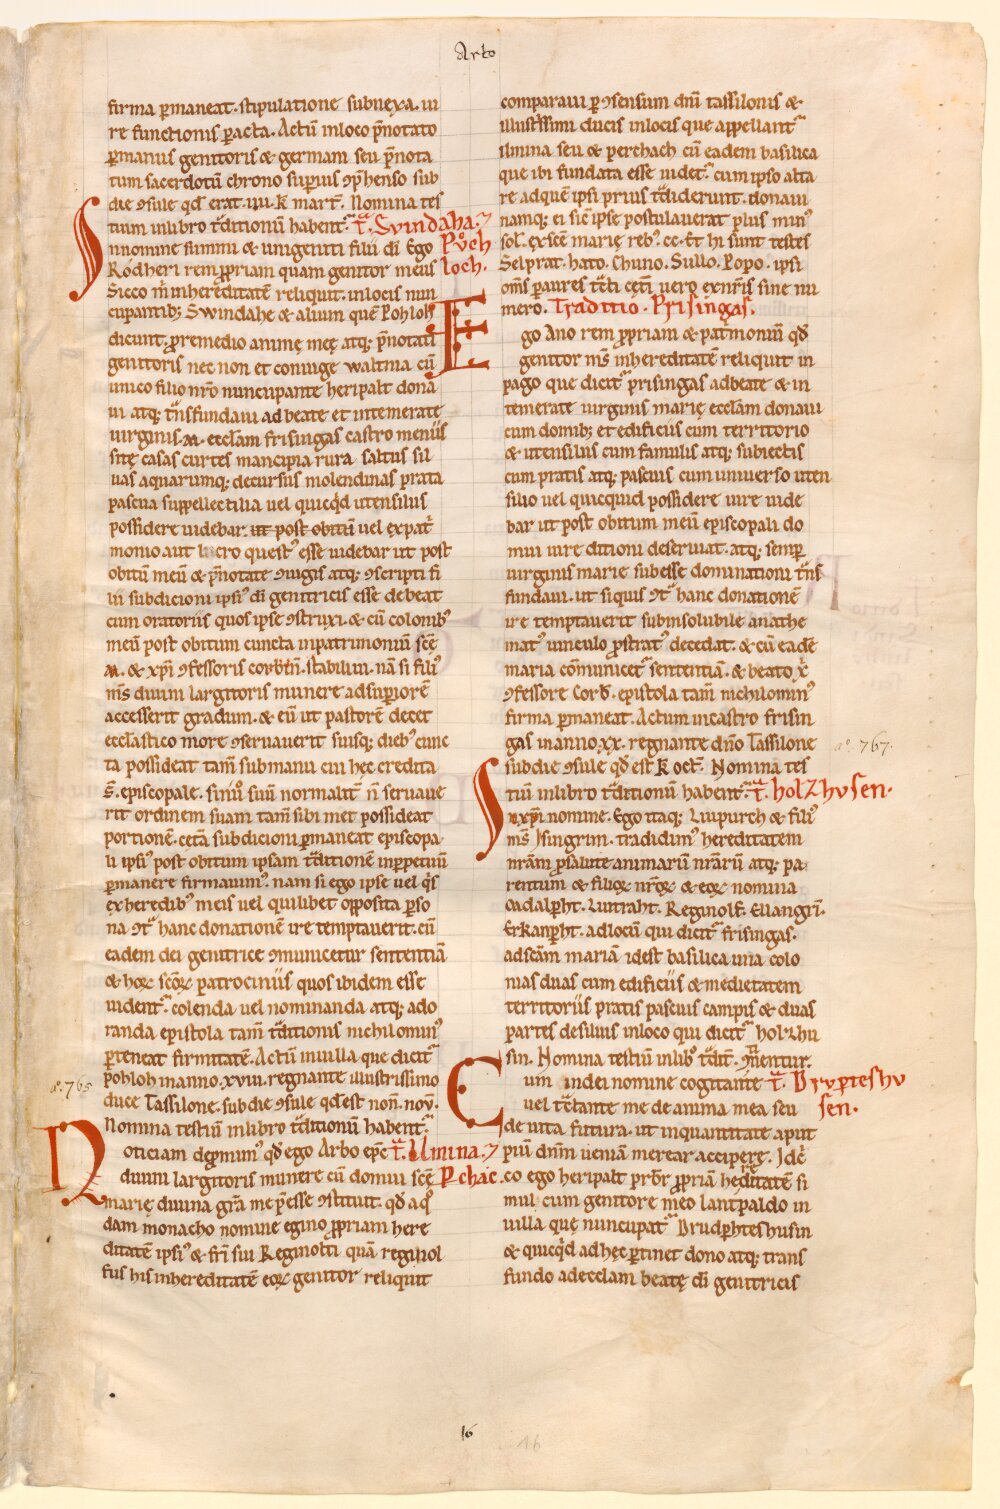 Arbo
firma ꝑmaneat. stipulatione subnexa. iu
re functionis ꝑacta. Actū inloco p̄notato
ꝑmanus genitoris & germani seu p̄nota
tum sacerdotū chrono supius ꝯp̄henso sub
die ꝯsule qd̄ erat. iiii. k̄ mart̄. Nomina tes
tium inlibro t̄ditionū habent᷑. t̄. Svvindaha. ⁊
Innomine summi & unigeniti filii dī Ego Pŏch
Rodheri rem ꝓpriam quam genitor meus loch.
Sicco m̄ inhereditatē reliquit. inlocis nun
cupantib; Swindahe & alium quē Pohloh
dicunt. ꝓremedio animę męę atq; p̄notati
genitoris nec non et coniuge waltnia cū
unico filio nr̄o nuncupante heripalt dona
ui atq; t̄nsfundaui ad beate et intemerate
uirginis. M. ecclam frisingas castro meniis
sitę casas curtes mancipia rura saltus sil
uas aquarumq; decursus molendinas prata
pascua suppellectilia uel quicqd utensilus
possidere uidebar. ut post obitū uel expat̄
monio aut lucro quest᷒ esse uidebar ut post
obitū meū & p̄notate ꝯiugis atq; ꝯscripti fi
lii subdicioni ipsi᷒ dī genitricis esse debeat
cum oratoriis quos ipse ꝯstruxi. & cū colonib᷒
meū post obitum cuncta inpatrimoniū scē
M. & xp̄i ꝯfessoris corbīn. stabiliui. nā si fili᷒
m̄s diuini largitoris munere adsuꝑiorē
accesserit gradum. & eū ut pastorē decet
ecclastico more ꝯseruauerit suisq; dieb᷒ cunc
ta possideat tam̄ submanu cui hęc credita
ē. episcopale. sinū suū normalit̄ n̄ seruaue
rit ordinem suam tam̄ sibi met possideat
portionē. cet̄a subdicioni ꝑmaneat episcopa
li ipsi᷒ post obitum ipsam t̄ditionē inꝑpetuū
ꝑmanere firmauim᷒. nam si ego ipse uel q̄s
ex heredib᷒ meis uel quilibet opposita ꝑso
na ꝯt̄ hanc donationē ire temptauerit. cū
eadem dei genitrice ꝯmunicetur sententiā
& hoꝝ scōꝝ patrociniis quos ibidem esse
uident᷑. colenda uel nominanda atq; ado
randa epistola tam̄ t̄ditionis nichilomin᷒
ꝑteneat firmitatē. Actū inuilla que dicit᷑
pohloh inanno. xviii. regnante illustrissimo
a°. 765
duce Tassilone. subdie ꝯsule qd̄ est non̄. nov̄.
Nomina testiū inlibro t̄ditionū habent᷑.
Noticiam depmim᷒ qd̄ ego Arbo epc̄ t̄. Ilmina. ⁊
diuini largitoris munere cū domui scē Pchac.
marię diuina gr̄a me p̄esse ꝯstituit. qd̄ aq᷒
dam monacho nomine egino ꝓpriam here
ditatē ipsi᷒ & fr̄i sui Reginolti quā reginol
fus his inhereditatē eoꝝ genitor reliquit
comparaui ꝑ ꝯsensum dnī tassilonis &
illustissimi ducis inlocis que appellant᷑
ilmina seu & perchach cū eadem basilica
que ibi fundata esse uidet᷑. cum ipso alta
re adquē ipsi prius t̄diderunt. donaui
namq; ei sic ipse postulauerat plus min᷒
sol̄. ex scē marię reb᷒. cc. Et hi sunt testes
Selprat. hato. Chuno. Sullo. Popo. ipsi
om̄s ꝑ aures t̄cti cet̄i uero exn̄ris sine nu
mero. Traditio. Prisingas.
Ego Ano rem ꝓpriam & pat̄moniū qd̄
genitor m̄s inhereditatē reliquit in
pago que dicit᷑ prisingas adbeate & in
temerate uirginis marię ecclam donaui
cum domib; et edificiis cum territorio
& utensilus cum familiis atq; subiectis
cum pratis atq; pascuis cum uniuerso uten
silio uel quicquid possidere iure uide
bar ut post obitum meū episcopali do
mui iure ditioni deseruiat. atq; semꝑ
uirginis marie subesse dominationi t̄ns
fundaui. ut siquis ꝯt̄ hanc donationē
ire temptauerit subinsolubile anathe
mat᷒ uinculo ꝓstrat᷒ decedat. & cū eadē
maria cōmunicet᷑ sententiā. & beato x̄
ꝯfessore Corb̄. epistola tam̄ nichilomin᷒
firma ꝑmaneat. Actum incastro frisin
gas inanno. xx. regnante dn̄o Tassilone
a°. 767.
subdie ꝯsule qd̄ est k̄ oct̄. Nomina tes
tiū inlibro t̄ditionū habent᷑. t̄. holzhvsen.
Inxp̄i nomine. Ego itaq; Liupurch & fili᷒
m̄s Isingrim. tradidim᷒ hereditatem
nr̄am ꝓsalute animarū nr̄arū atq; pa
rentum & filioꝝ nr̄oꝝ & eoꝝ nomina
Oadalꝑht. Luitraht. Reginolf̄. Ellangrī.
Erkanꝑht. adlocū qui dicit᷑ frisingas.
adscām mariā idest basilica una colo
nias duas cum edificiis & medietatem
territoriis pratis pascuis campis & duas
partes desiluis inloco qui dicit᷑ holzhu
sin. Nomina testiū inlib᷒ t̄dit̄. ꝯtinentur.
Cum indei nomine cogitante t̄. Drvpteshv
uel t̄ctante me de anima mea seu sen.
de uita futura. ut inquantitate aput
piū dnm̄ ueniā merear accipere. Idc̄
co ego heripalt prb̄r ꝓpriā hereditatē si
mul cum genitore meo lantpaldo in
uilla quę nuncupat᷑ Drudꝑhteshusin
& quicqd adhęc ꝑtinet dono atq; trans
fundo adecclam beatę dī genitricis
16
16